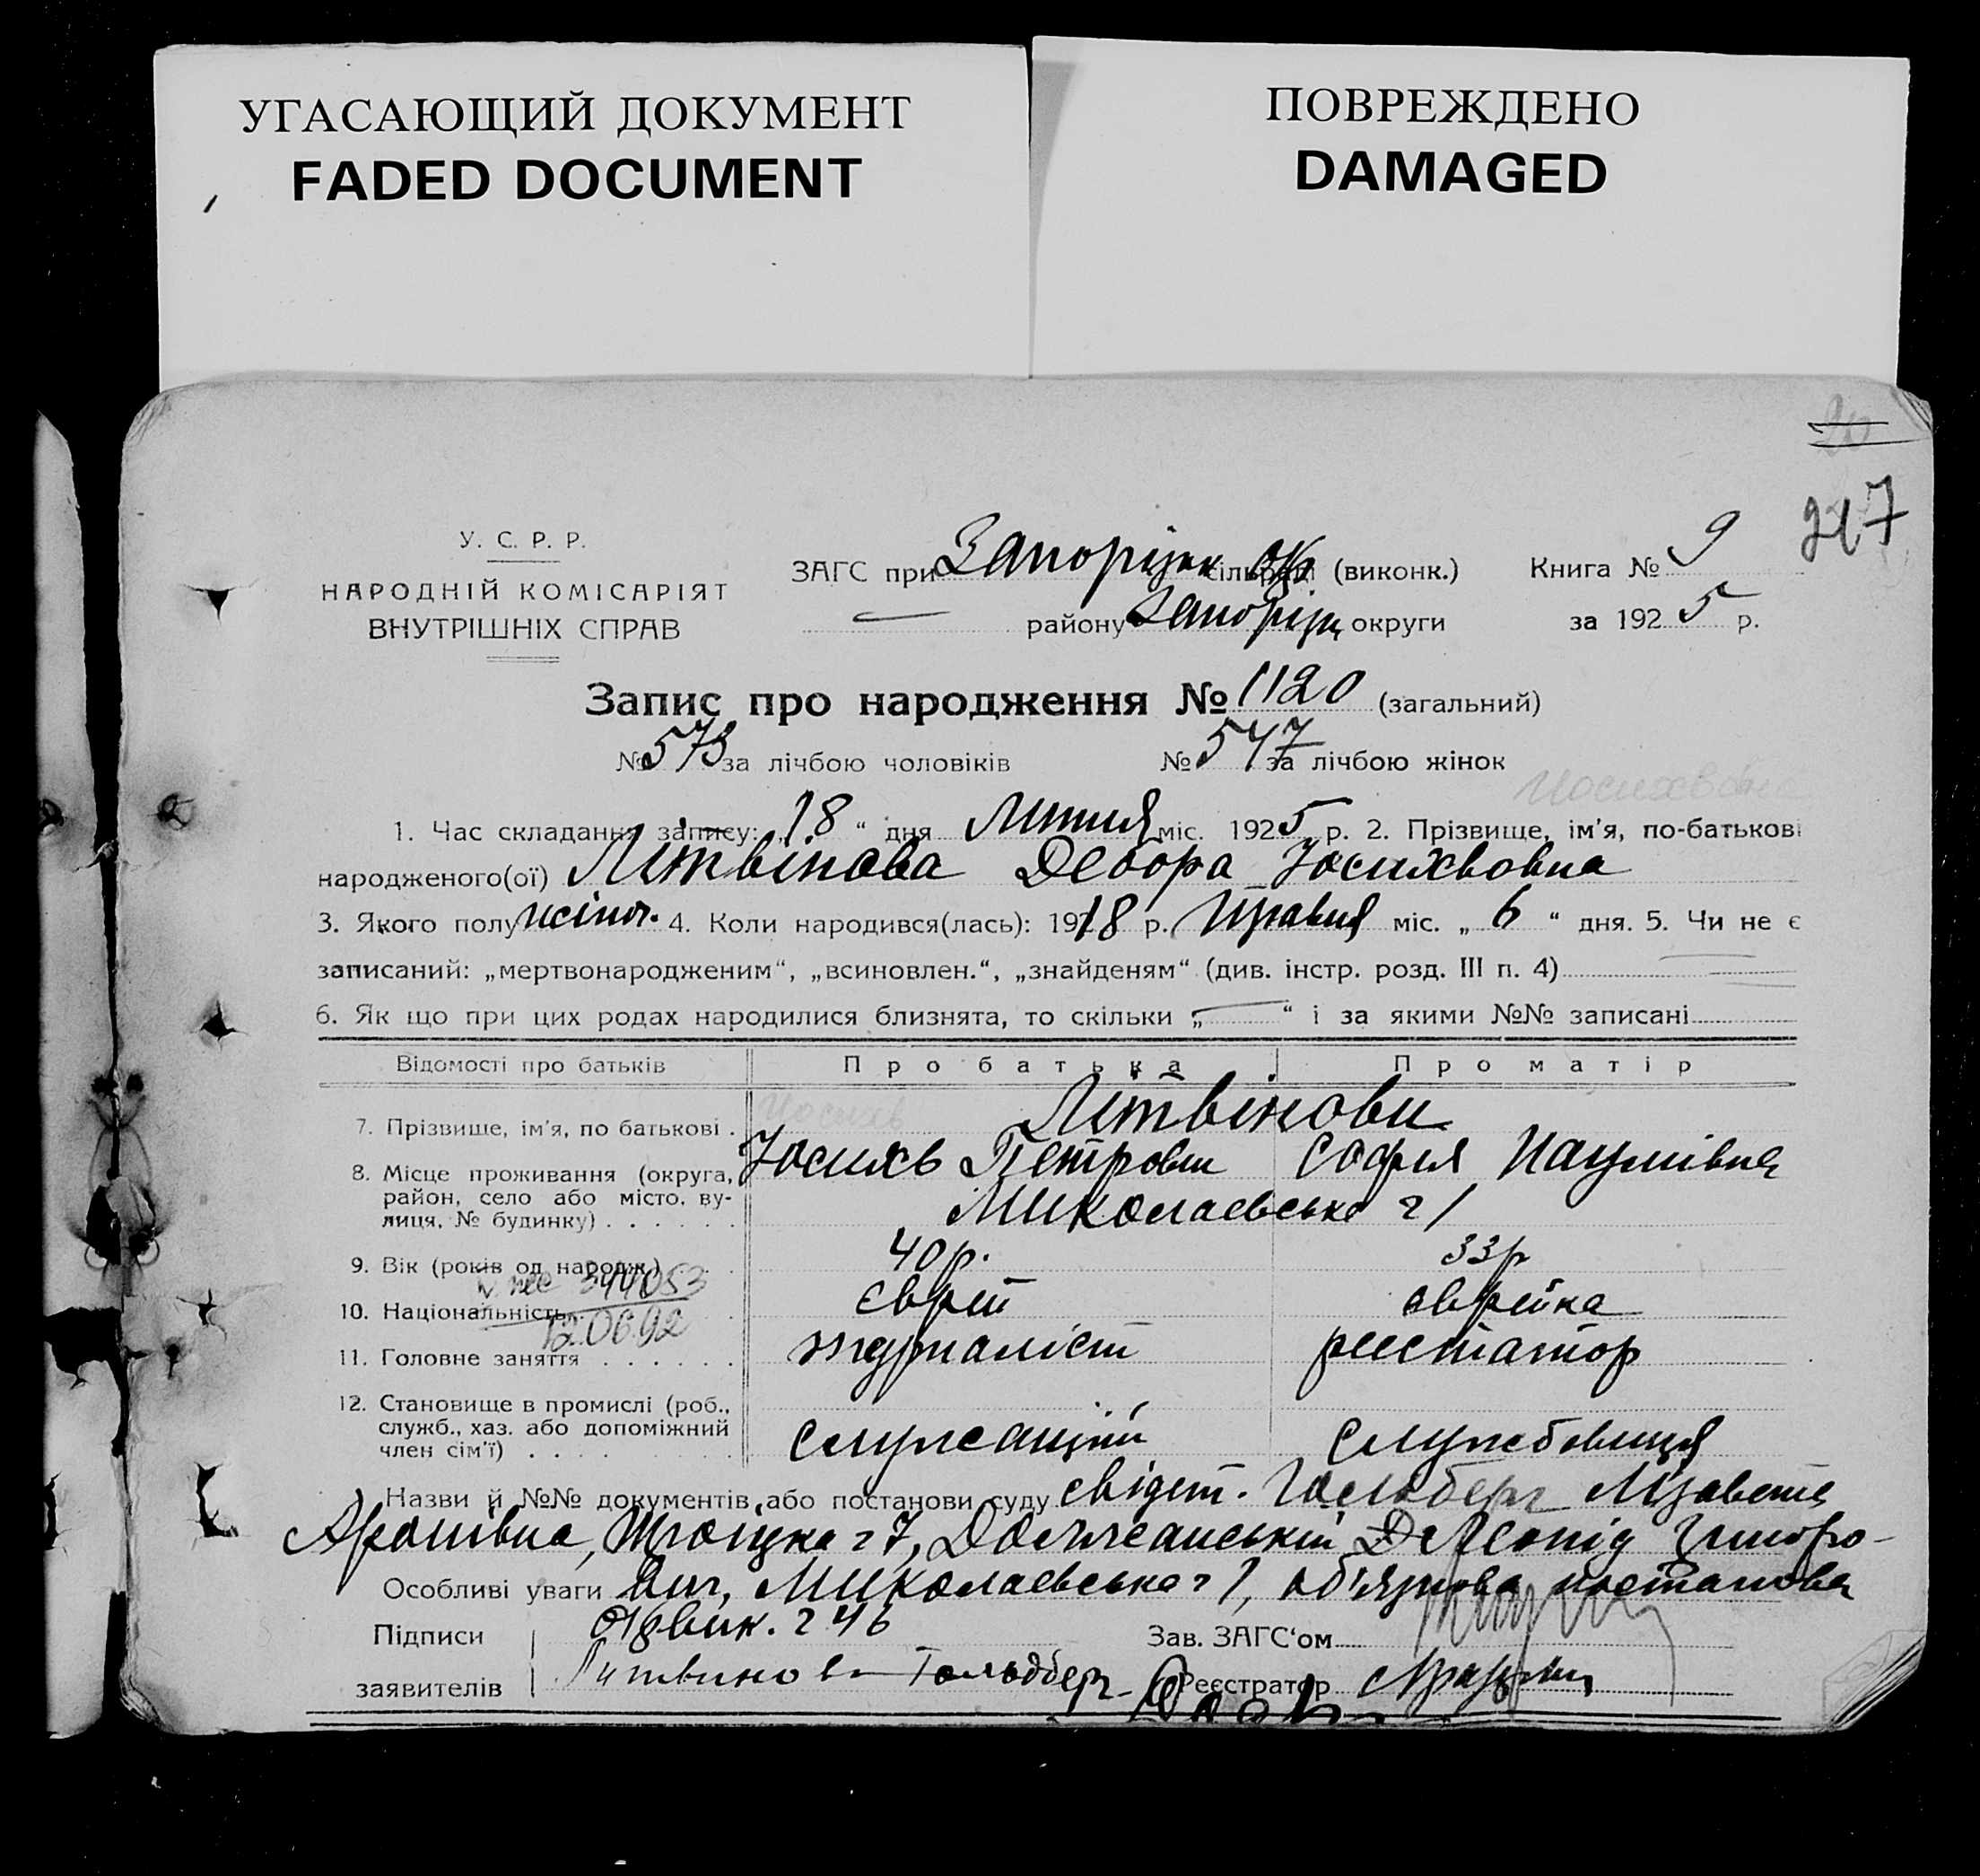 УГАСАЮЩИЙ ДОКУМЕНТ
FADED DOCUMENT
ПОВРЕЖДЕНО
DAMAGED
217
У. С. Р. Р.
НАРОДНІЙ КОМІСАРІЯТ
ВНУТРІШНІХ СПРАВ
ЗАГС при Запорізьк сільраді (виконк.)
району Запорізьк округи
Книга № 9
за 1925 р.
Запис про народження № 1120 (загальний)
№ 573 за лічбою чоловіків № 547 за лічбою жінок
Иосихвовна
1. Час складання запису: „18“ дня Липня міс. 1925 р. 2. Прізвище, ім'я, по-батькові
народженого(ої) Літвінова Дебора Юсихвовна
3. Якого полу жіноч. 4. Коли народився(лась): 1918 р. Травня міс. „6“ дня. 5. Чи не є
записаний: „мертвонародженим“, „всиновлен.“, „знайденям“ (див. інстр. розд. III п. 4)
6. Як що при цих родах народилися близнята, то скільки „ “ і за якими №№ записані
Відомості про батьків Про батька Про матір
Иосихв
Літвінови
7. Прізвище, ім'я, по батькові .
Юсихв Петрович Софія Наумівна
8. Місце проживання (округа,
район, село або місто, ву-
лиця, № будинку) . . . . . .
Миколаєвська
9. Вік (років од народж.) . . . 40 р. 33 р
344053
10. Національність єврей єврейка
12.06.92
11. Головне заняття . . . . . . журналіст реєстратор
12. Становище в промислі (роб.,
служб., хаз. або допоміжний
член сім'ї) . . . .
служащий службовиця
Назви й №№ документів або постанови суду свідет. Гольдберг Лізавета
Аронівна, Троіцка 7, Должанський Леонід Григоро-
Особливі уваги вич, Миколаєвська обʼязкова постанова
Окрвик. 46
Підписи Зав. ЗАГС'ом
заявителів Литвинова Гольдберг Реєстратор